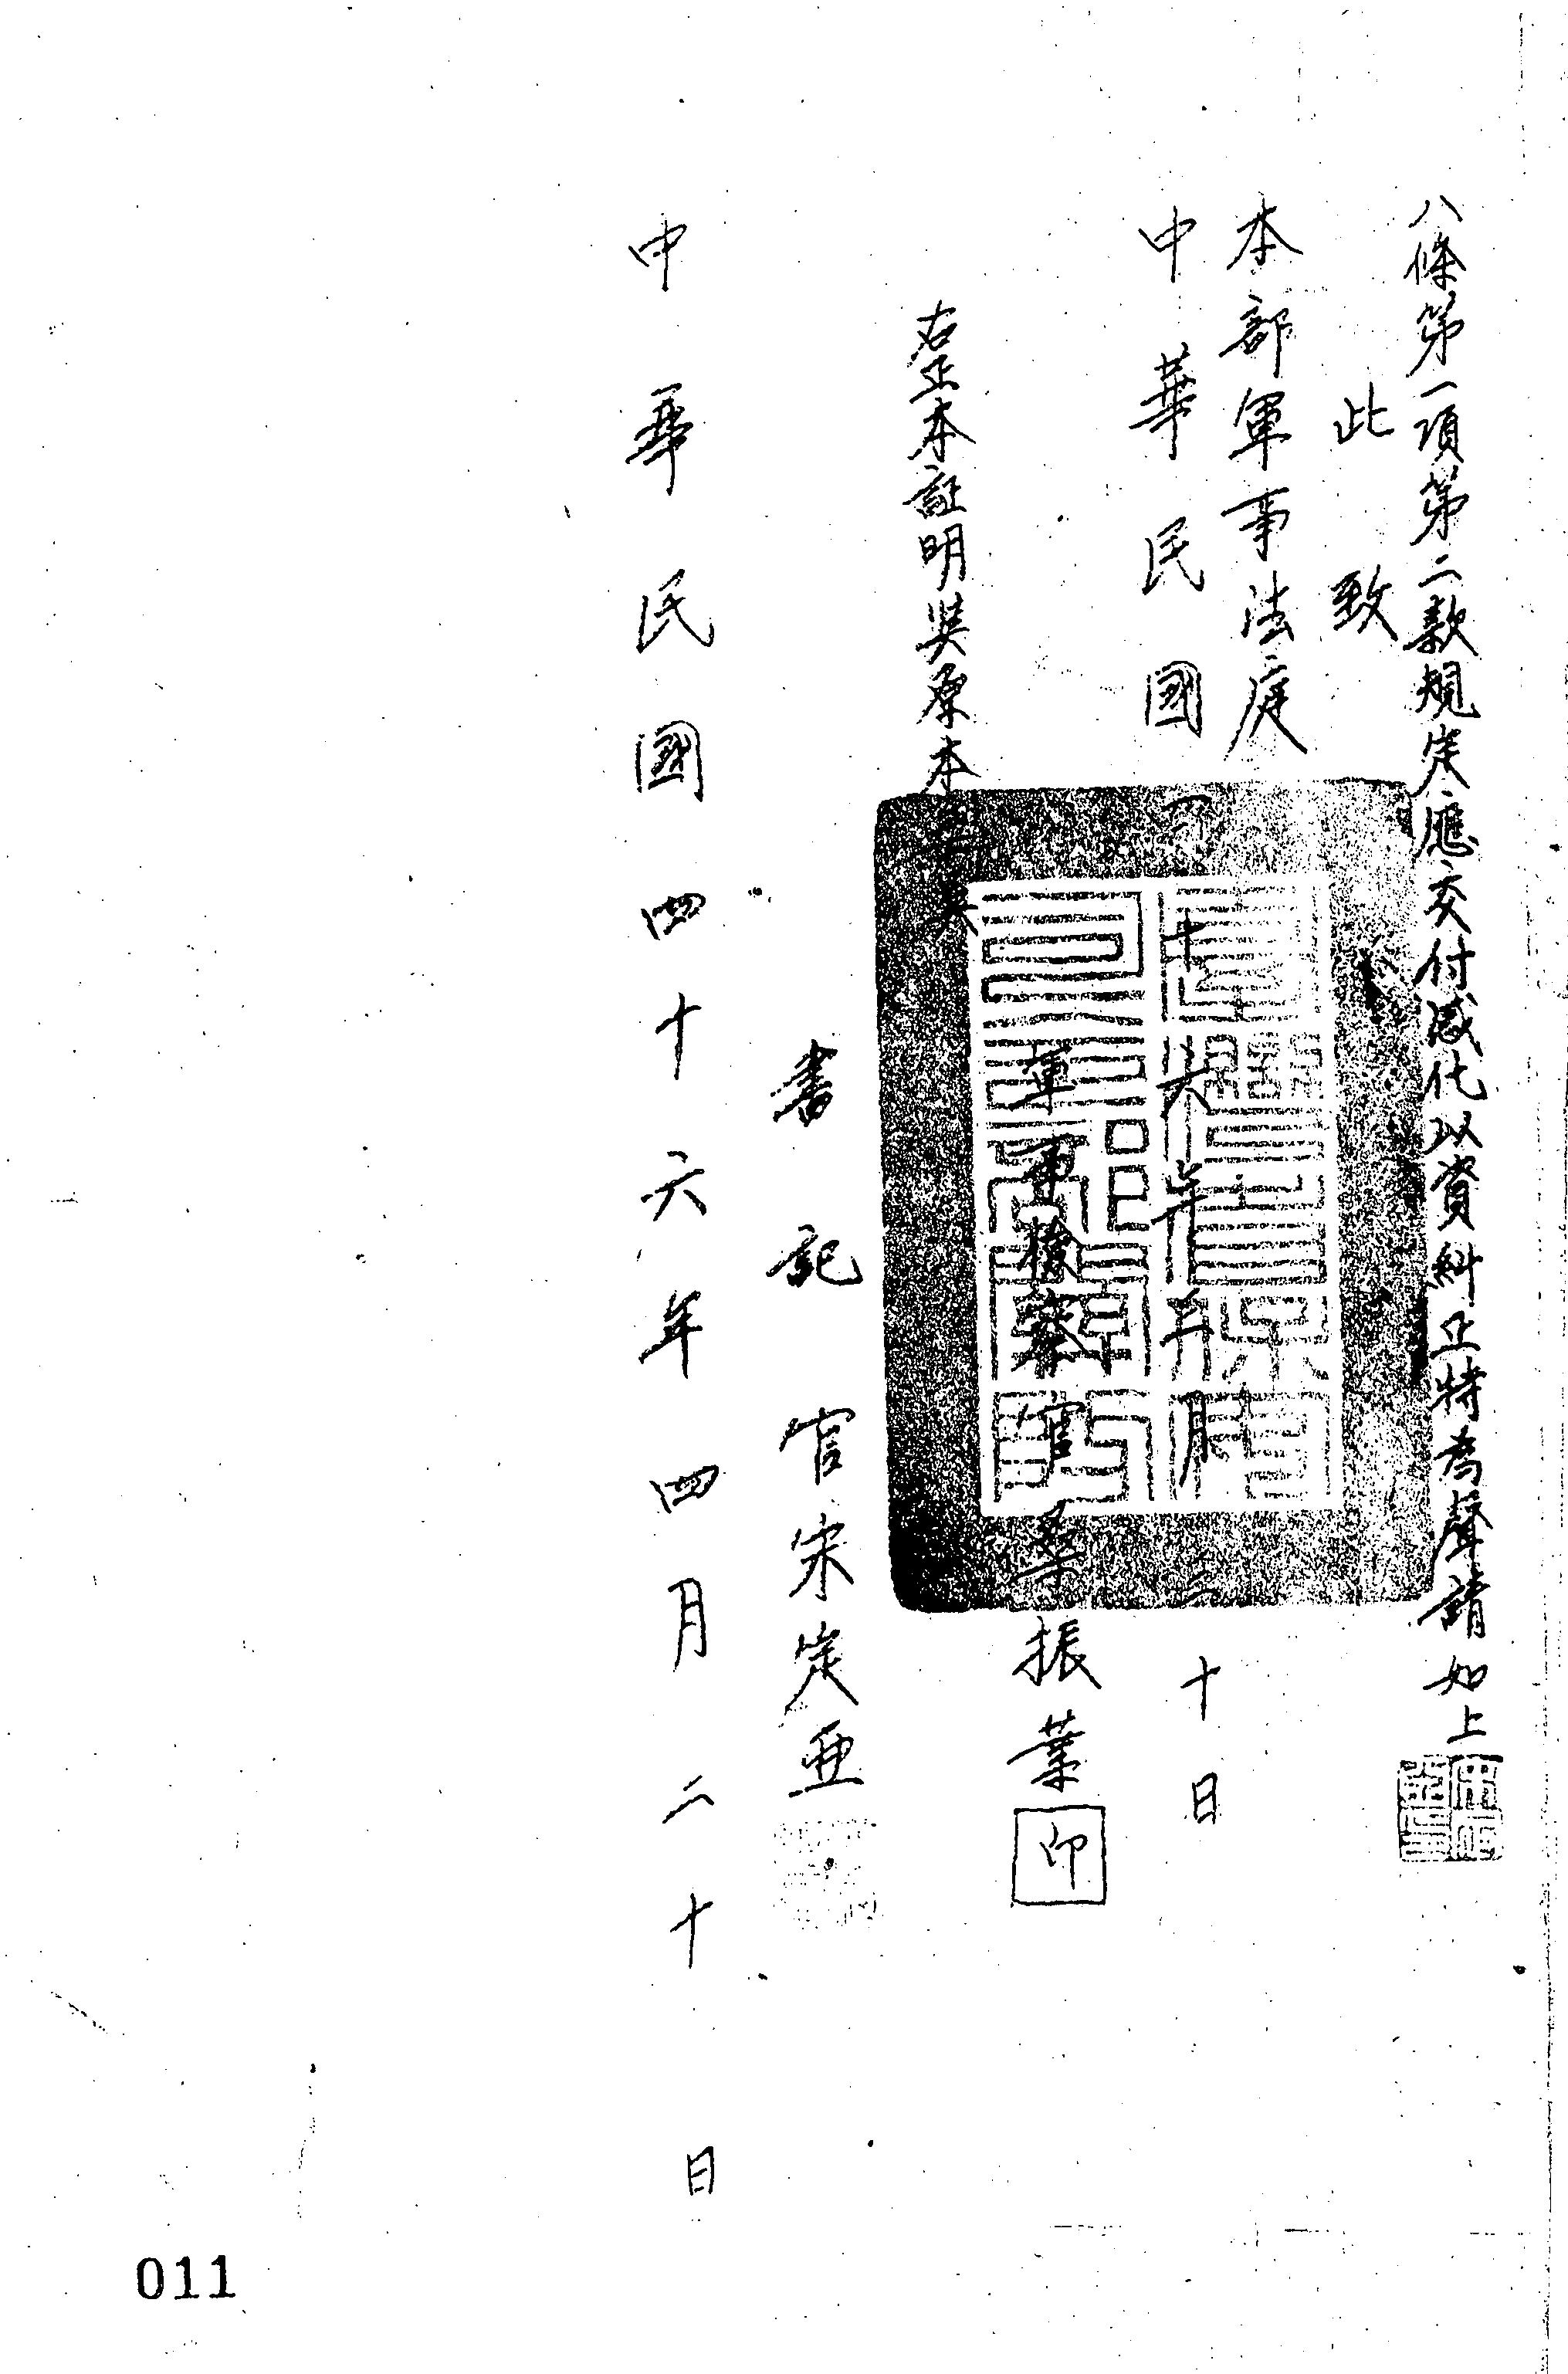 八條第一項第二款規定應交付感化以資糾正特為聲請如上
此致
本部軍事法庭
中華民國四十六年 月 十日
軍事檢察官 振葉 印
右正本証明與原本 異
書記官宋定亜
中華民國四十六年四月二十日
011